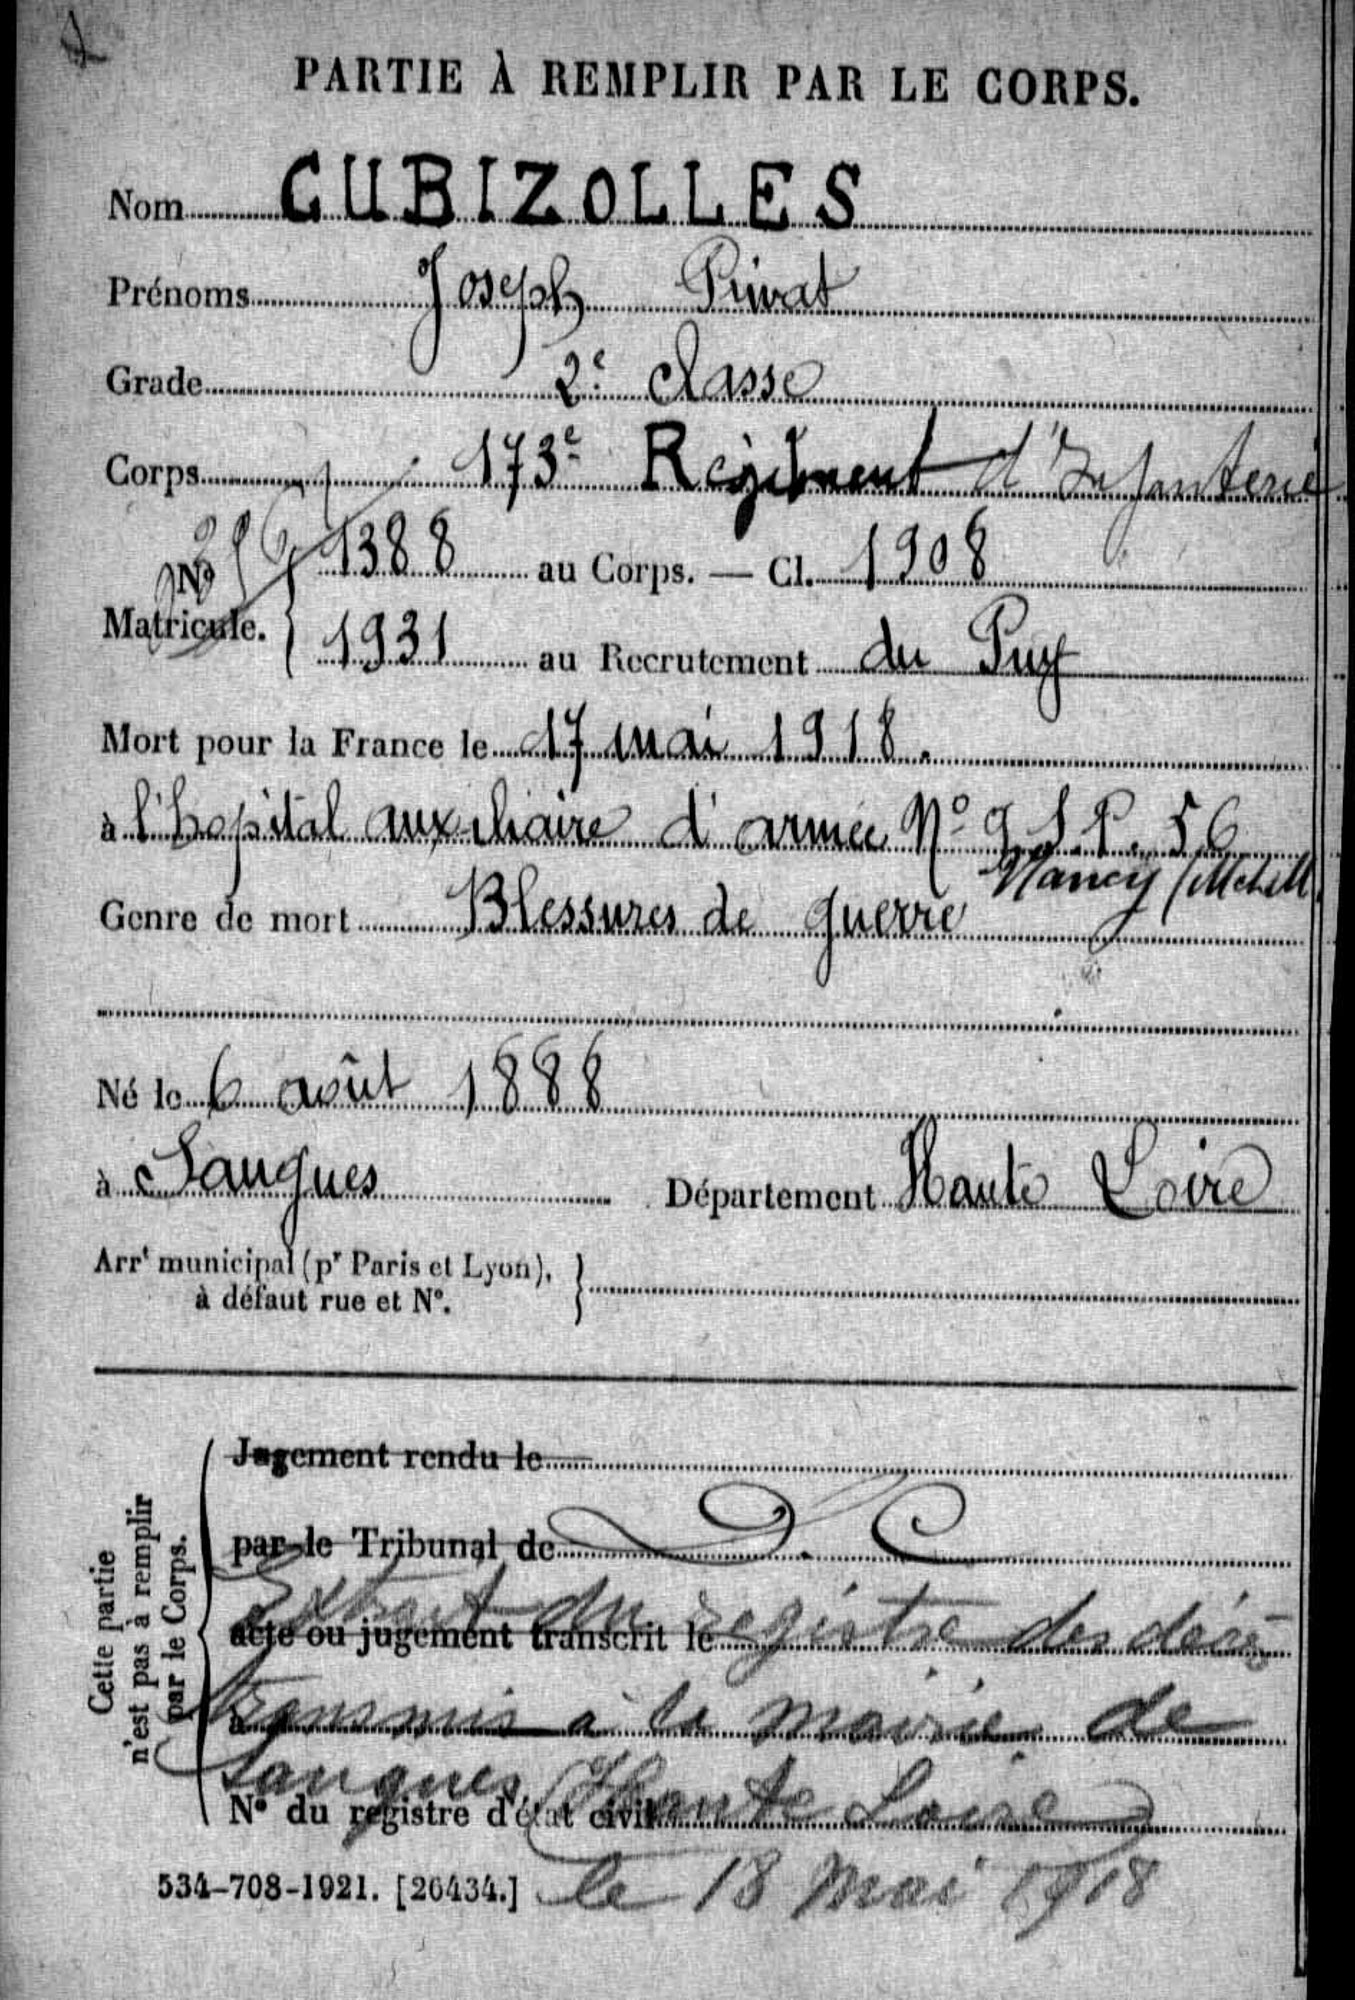 PARTIE À REMPLIR PAR LE CORPS.
Nom CUBIZOLLES
Prénoms Joseph Privat
Grade 2e classe
Corps 173e Régiment d'Infanterie
No Matricule. 1388 au Corps. — Cl. 1908
1931 au Recrutement du Puy
Mort pour la France le 17 mai 1918.
à l'hopital auxiliaire d'armée No 9 S.P. 56
Nancy
Genre de mort Blessures de guerre
Né le 6 août 1888
à Saugues Département Haute Loire
Arrt municipal (pr Paris et Lyon),
à défaut rue et No.
Cette partie
n'est pas à remplir
par le Corps.
Jugement rendu le
par le Tribunal de
Extrait du registre des décès
acte ou jugement transcrit le
transmis à la mairie de
à
Saugues (Haute Loire)
No du registre d'état civil
le 18 mai 1918
534-708-1921. [26434.]